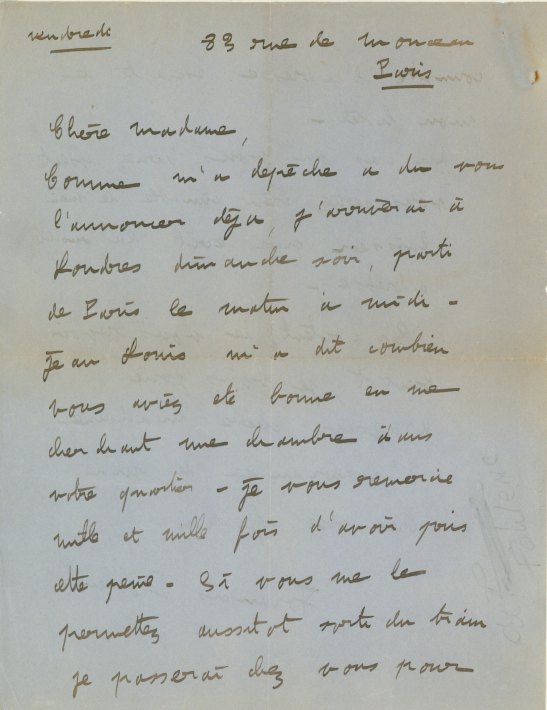 vendredi
83 rue de Monceau
Paris
Chère Madame,
Comme m'a depèche a du vous
l'annoncer déja, j'arriverai à
Londres dimanche soir, parti
de Paris le matin à midi -
Jean Louis m'a dit combien
vous aviez eté bonne en me
cherchant une chambre dans
votre quartier - je vous remercie
mille et mille fois d'avoir pris
cette peine - Si vous me le
permettez aussitot sorti du train
je passerai chez vous pour